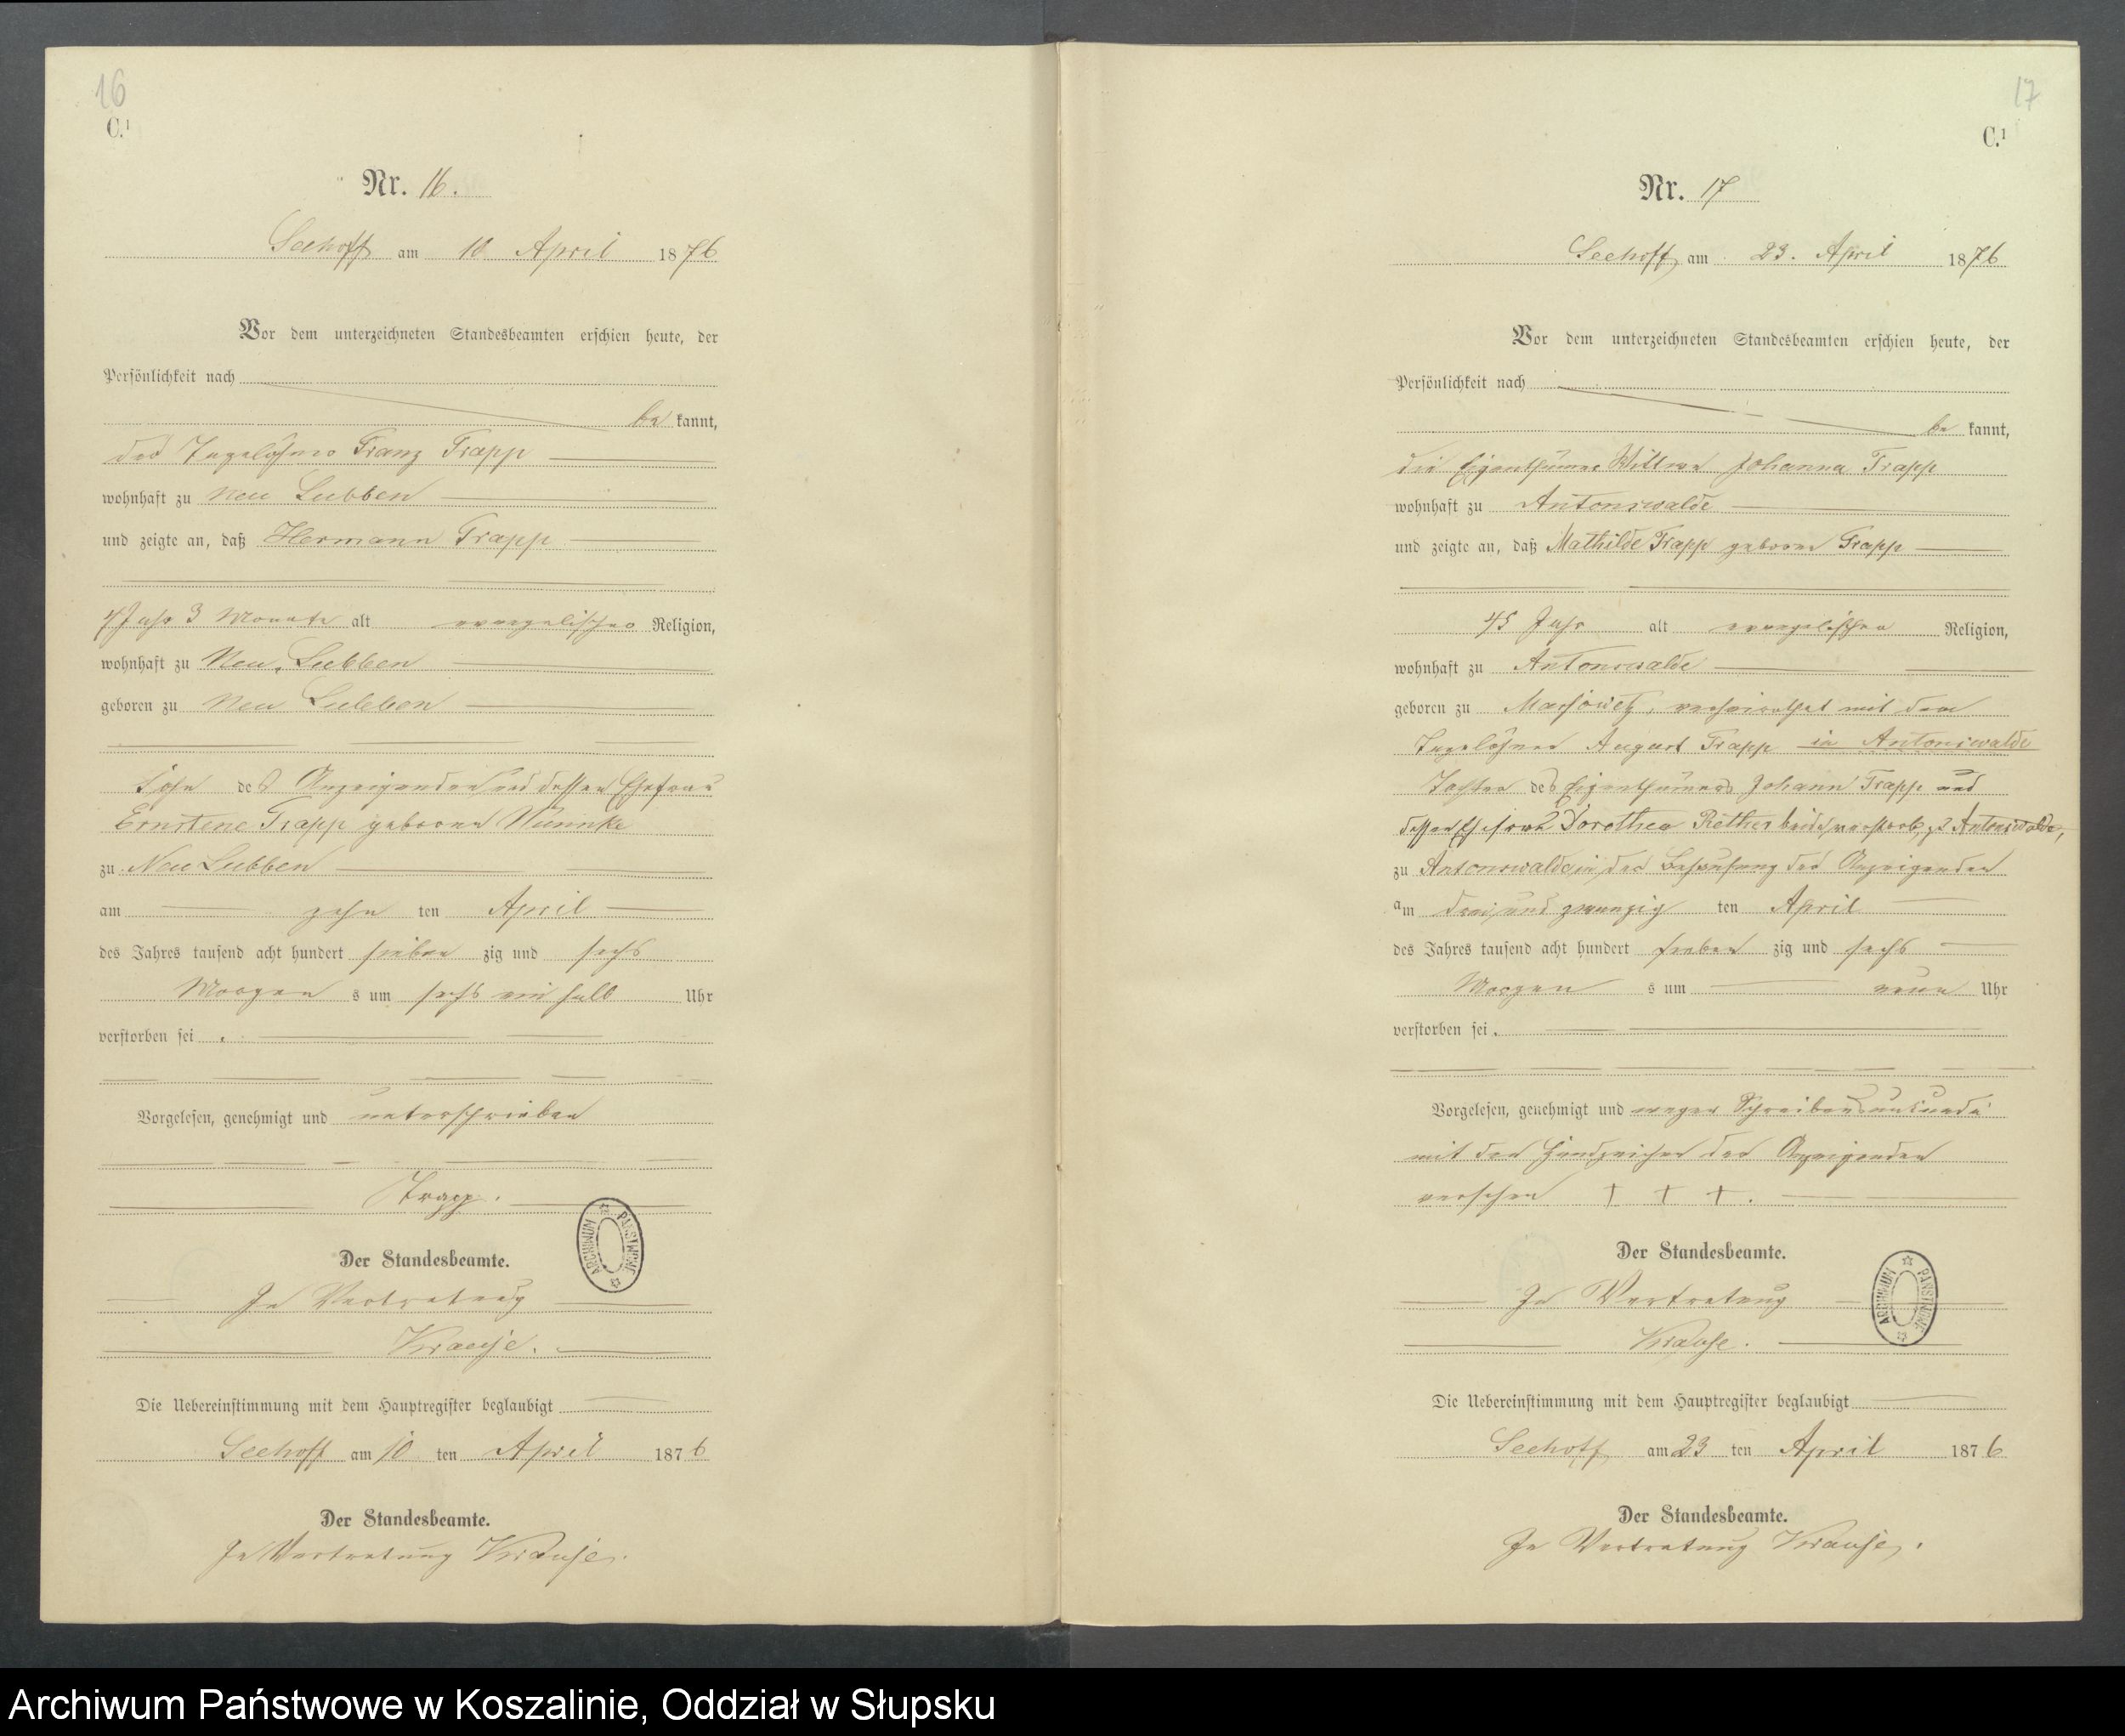 16
C.¹
Nr. 16.
Seehoff am 10 April 1876
Vor dem unterzeichneten Standesbeamten erschien heute, der
Persönlichkeit nach
be kannt,
der Tagelöhner Franz Trapp
wohnhaft zu Neu Lubben
und zeigte an, daß Hermann Trapp
Jahr 3 Monate alt evangelischer Religion,
wohnhaft zu Neu Lubben
geboren zu Neu Lubben
Sohn des Anzeigenden und dessen Ehefrau
Ernstene Trapp geborene
zu Neu Lubben
am zehn ten April
des Jahres tausend acht hundert sieben zig und sechs
Morgen s um sechs ein halb Uhr
verstorben sei .
Vorgelesen, genehmigt und unterschrieben
Trapp.
Der Standesbeamte.
In Vertretung
Krause.
ARCHIWUM PAŃSTWOWE
Die Uebereinstimmung mit dem Hauptregister beglaubigt
Seehoff am 10 ten April 1876
Der Standesbeamte.
In Vertretung Krause.
17
C.¹
Nr. 17
Seehoff am 23. April 1876
Vor dem unterzeichneten Standesbeamten erschien heute, der
Persönlichkeit nach
be kannt,
die Eigenthümer Wittwe Johanna Trapp
wohnhaft zu Antonswalde
und zeigte an, daß Mathilde Trapp geborne Trapp
45 Jahr alt evangelischen Religion,
wohnhaft zu Antonswalde
geboren zu verheirathet mit dem
Tagelöhner August Trapp in Antonswalde
Tochter des Eigenthümers Johann Trapp und
dessen Ehefrau Dorothea beide verstorb. zu Antonswalde,
zu Antonswalde in der Behausung der Anzeigenden
am drei und zwanzig ten April
des Jahres tausend acht hundert sieben zig und sechs
Morgen s um neun Uhr
verstorben sei .
Vorgelesen, genehmigt und wegen Schreibensunkunde
mit den Handzeichen der Anzeigenden
versehen † † †.
Der Standesbeamte.
In Vertretung
Krause.
ARCHIWUM PAŃSTWOWE
Die Uebereinstimmung mit dem Hauptregister beglaubigt
Seehoff am 23 ten April 1876
Der Standesbeamte.
In Vertretung Krause.
Archiwum Państwowe w Koszalinie, Oddział w Słupsku